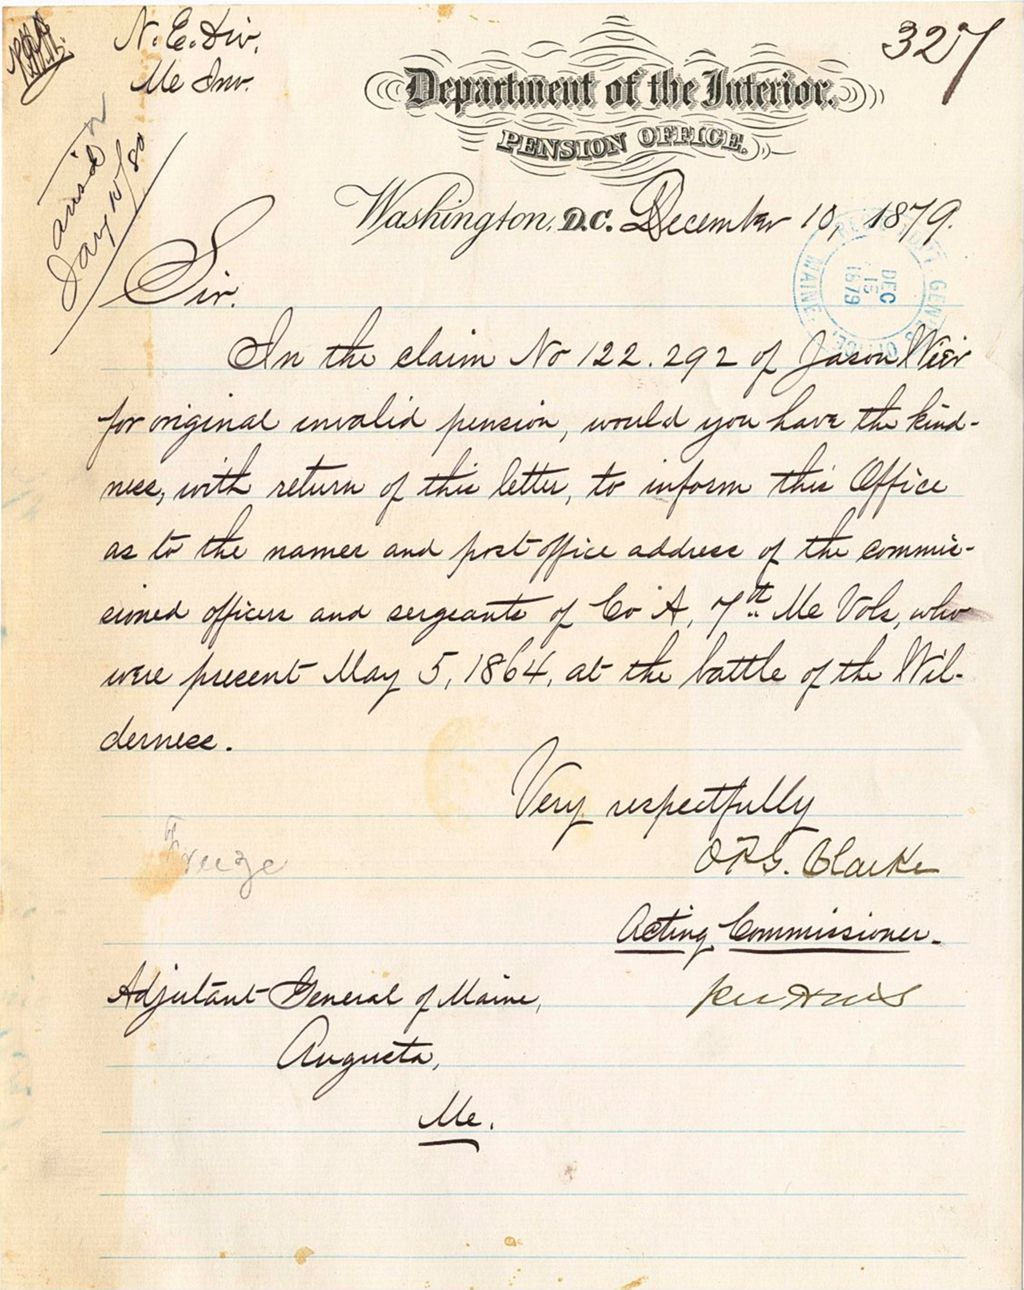 N. E. Div.
Me Inv.
327
Department of the Interior.
PENSION OFFICE.
Washington, D.C. December 10, 1879.
ansd
Jany 10/80
ADJT. GEN'S OFFICE
MAINE
DEC
15
1879
Sir.
In the claim No 122.292 of Jason Weir
for original invalid pension, would you have the kind-
ness, with return of this letter, to inform this Office
as to the names and post office address of the commis-
sioned officers and sergeants of Co A, 7th Me Vols, who
were present May 5, 1864, at the battle of the Wil-
derness.
Very respectfully
O.P.G. Clarke
Acting Commissioner.
Adjutant General of Maine,
Augusta,
Me.